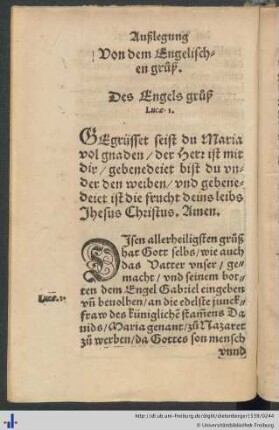 Außlegung
Von dem Engelisch-
en grüß.
Des Engels grüß
Lucæ. 1.
GEgrüsset seist du Maria
vol gnaden / der Herr ist mit
dir / gebenedeiet bist du vn-
der den weiben / vnd gebene-
deiet ist die frucht deins leibs
Jhesus Christus. Amen.
DIsen allerheiligsten grüß
hat Gott selbs / wie auch
das Vatter vnser / ge-
macht / vnd seinem bot-
ten dem Engel Gabriel eingeben
Lucæ. 1.
vñ beuolhen / an die edelste junck-
fraw des küniglichē stam̃ens Da
uids / Maria genant / zů Nazaret
zů werben / da Gottes son mensch
vnnd
http://dl.ub.uni-freiburg.de/diglit/dietenberger1539/0244
© Universitätsbibliothek Freiburg